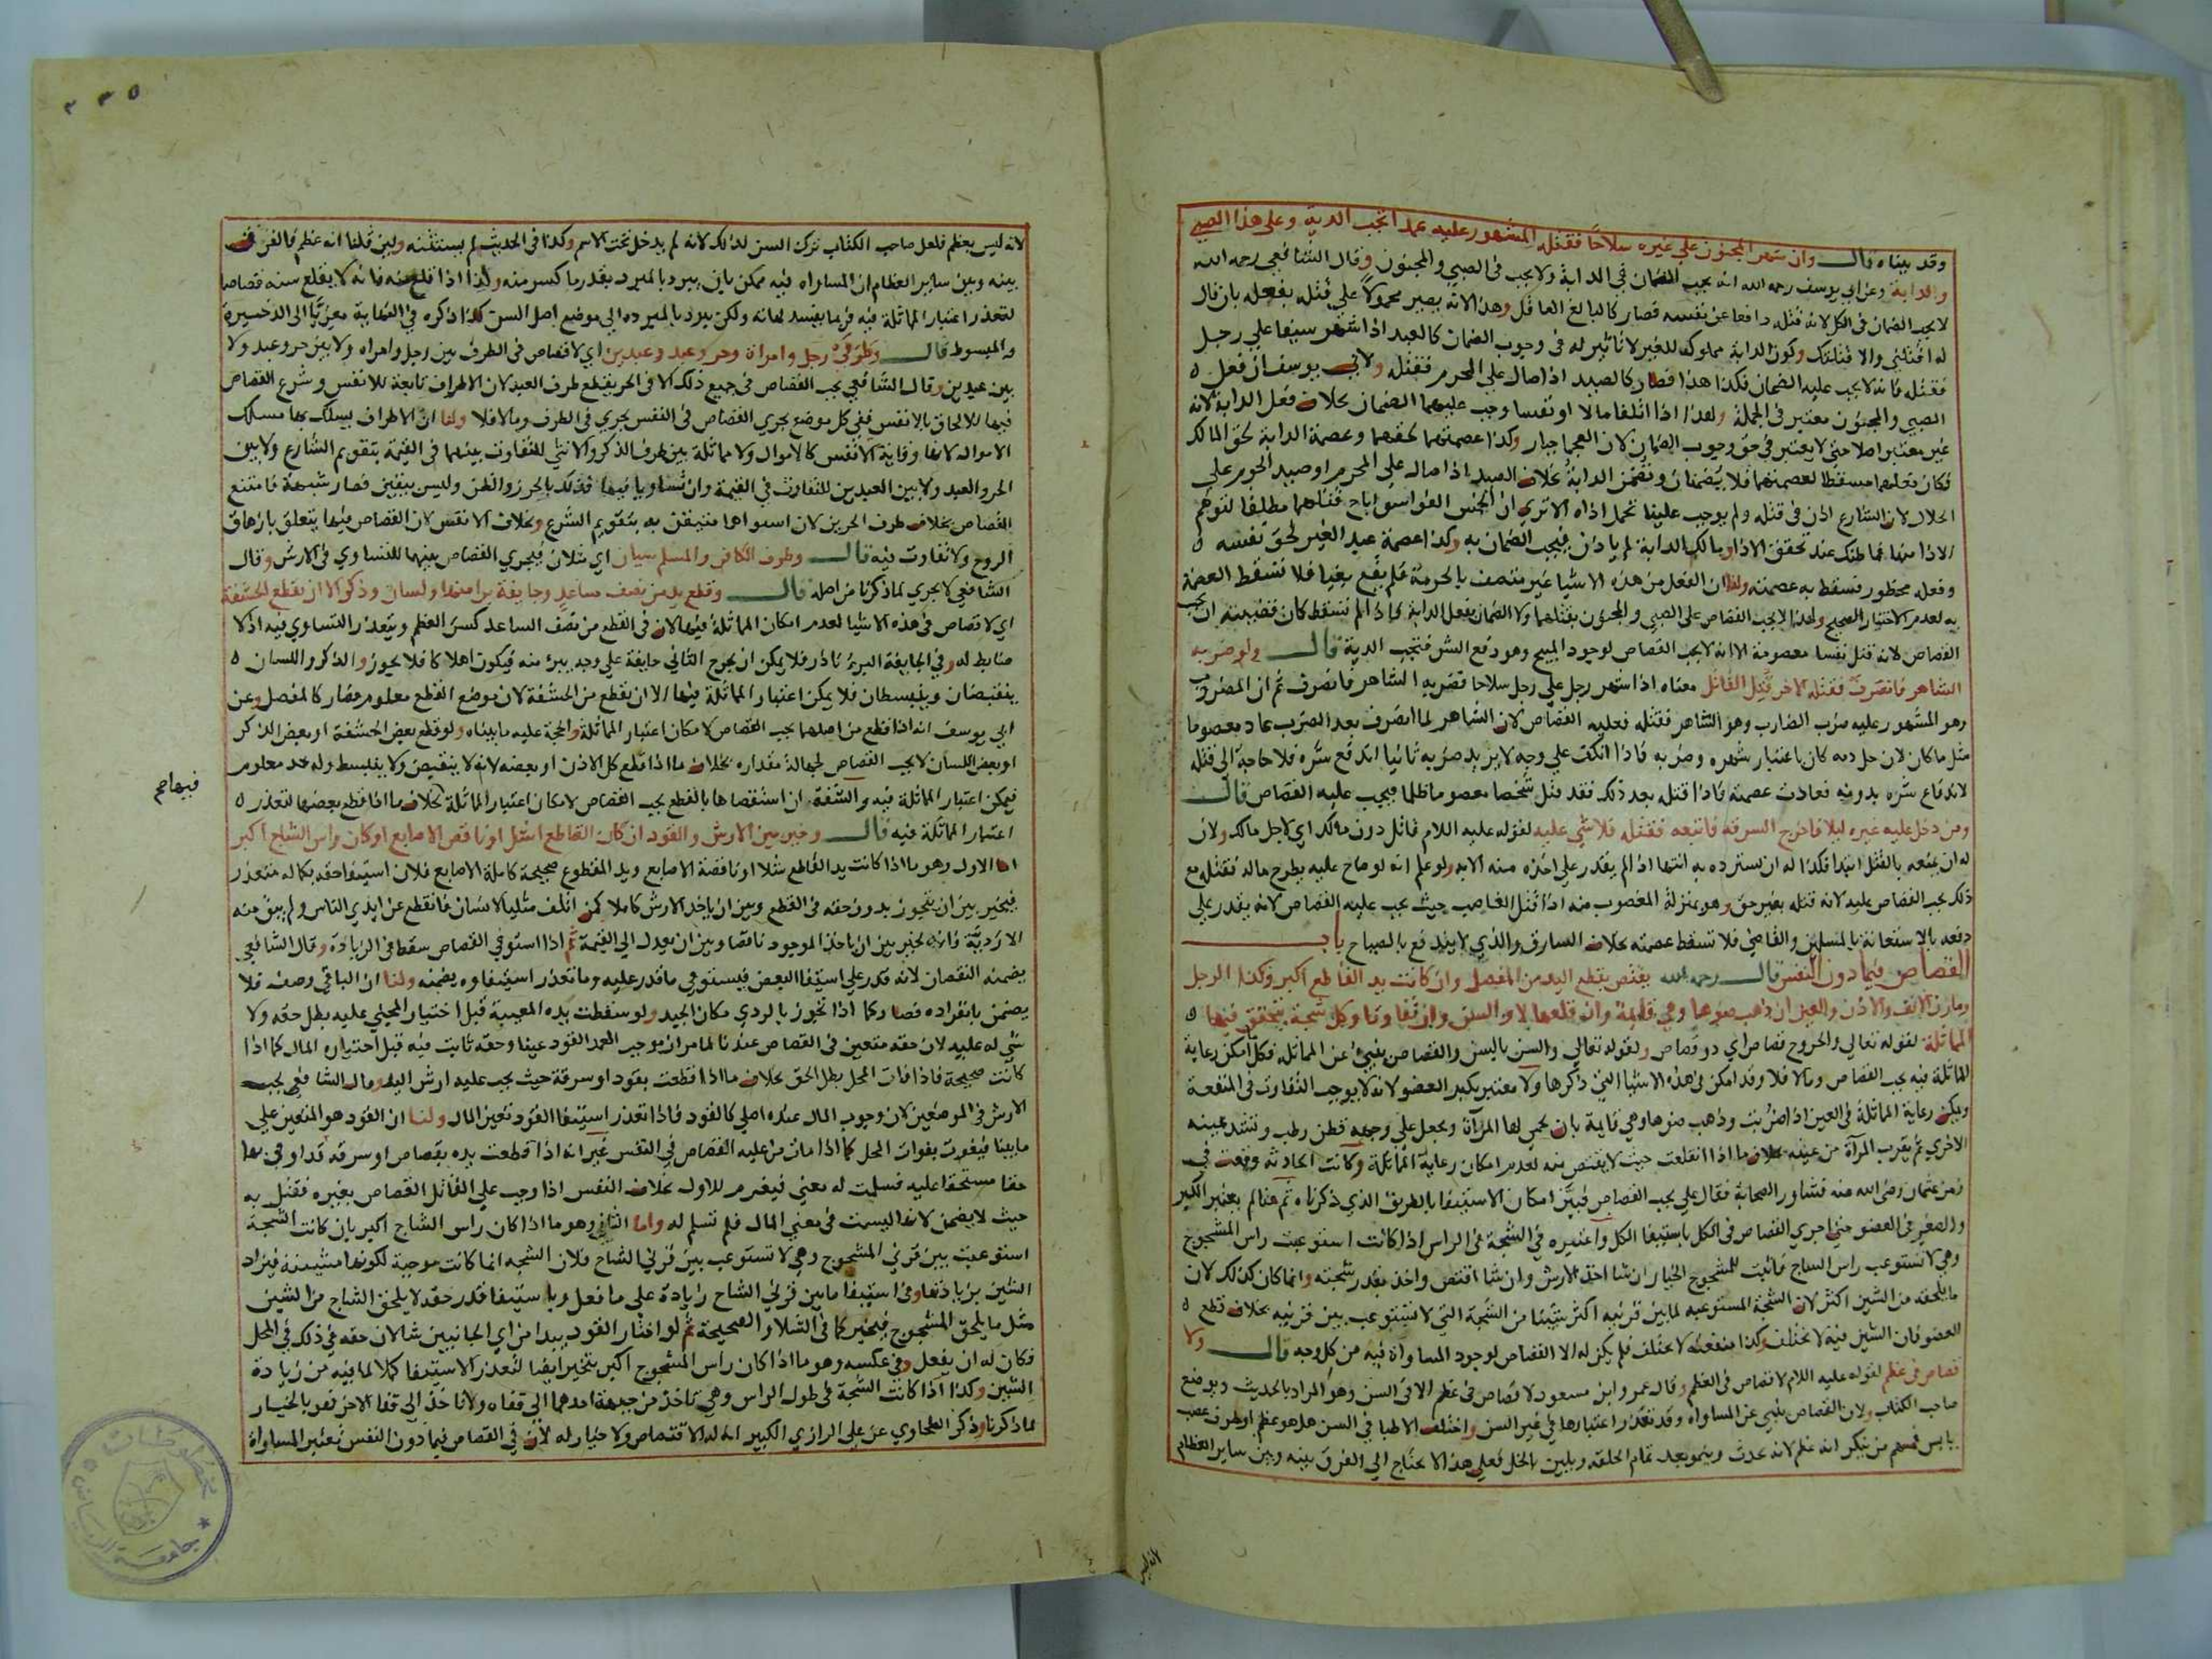 وقد بيناه قال وان شهر المجنون علي غيره سلاحا فقتله المشهور عليه عمدا تجب الدية وعلى هذا الصبي
والدابة وعن ابي يوسف رحمه الله انه يجب الضمان في الدابة ولا يجب في الصبي والمجنون وقال الشافعي رحمه الله
لا يجب الضمان في الكل لانه قتله دافعا عن نفسه فصار كالبالغ العاقل وهذا لانه يصير محمولا علي قتله بفعله بان قال
له اقتلني والا قتلتك وكون الدابة مملوكة للغير لا تاثير له في وجوب الضمان كالعبد اذا شهر سيفا علي رجل
فقتله فانه لا يجب عليه الضمان فكذا هذا فصار كالصيد اذا صال علي المحرم فقتله ولابي يوسف ان فعل
الصبي والمجنون معتبر في الجملة ولهذا اذا اتلفا مالا او نفسا وجب عليهما الضمان بخلاف فعل الدابة لانه
غير معتبر اصلا حتي لا يعتبر في حق وجوب الضمان لان العجما جبار وكذا عصمتهما لحقهما وعصمة الدابة لحق المالك
فكان فعلهما مسقطا لعصمتهما فلا يضمنان وتضمن الدابة بخلاف الصيد اذا صال علي المحرم او صيد الحرم علي
الحلال لان الشارع اذن في قتله ولم يوجب علينا تحمل اذاه الا تري ان الخمس الفواسق اباح قتلها مطلقا لتوهم
الاذا منها فما ظنك عند تحقق الاذا ومالك الدابة لم ياذن فيجب الضمان به وكذا عصمة عبد الغير لحق نفسه
وفعله محظور فتسقط به عصمته ولنا ان الفعل من هذه الاشيا غير متصف بالحرمة فلم يقع بغيا فلا تسقط العصمة
به لعدم الاختيار الصحيح ولهذا لا يجب القصاص علي الصبي والمجنون بقتلهما ولا الضمان بفعل الدابة فاذا لم تسقط كان قضيته ان يجب
القصاص لانه قتل نفسا معصومة الا انه لا يجب القصاص لوجود المبيح وهو دفع الشر فتجب الدية قال ولو ضربه
الشاهر فانصرف فقتله الاخر قتل القاتل معناه اذا شهر رجل علي رجل سلاحا فضربه الشاهر فانصرف ثم ان المضروب
وهو المشهور عليه ضرب الضارب وهو الشاهر فقتله فعليه القصاص لان الشاهر لما انصرف بعد الضرب عاد معصوما
مثل ما كان لان حل دمه كان باعتبار شهره وضربه فاذا انكف علي وجه لا يريد ضربه ثانيا اندفع شره فلا حاجة الى قتله
لاندفاع شره بدونه فعادت عصمته فاذا قتله بعد ذلك فقد قتل شخصا معصوما ظلما فيجب عليه القصاص قال
ومن دخل عليه غيره ليلا فاخرج السرقة فاتبعه فقتله فلا شي عليه لقوله عليه اللام قاتل دون مالك اي لاجل مالك ولان
له ان يمنعه بالقتل ابتدا فكذا له ان يسترده به انتها اذا لم يقدر علي اخذه منه الا به ولو علم انه لو صاح عليه يطرح ماله فقتله مع
ذلك يجب القصاص عليه لانه قتله بغير حق وهو بمنزلة المغصوب منه اذا قتل الغاصب حيث يجب عليه القصاص لانه يقدر علي
دفعه بالاستغاثة بالمسلمين والقاضي فلا تسقط عصمته بخلاف السارق والذي لا يندفع بالصياح باب
القصاص فيما دون النفس قال رحمه الله يقتص بقطع اليد من المفصل وان كانت يد القاطع اكبر وكذا الرجل
ومارن الانف والاذن والعين ان ذهب ضوها وهي قايمة وان قلعها لا والسن وان تفاوتا وكل شجة يتحقق فيها
المماثلة لقوله تعالي والجروح قصاص اي ذو قصاص ولقوله تعالي والسن بالسن والقصاص ينبئ عن المماثلة فكل ما امكن رعاية
المماثلة فيه يجب القصاص وما لا فلا وقد امكن في هذه الاشيا التي ذكرها ولا معتبر بكبر العضو لانه لا يوجب التفاوت في المنفعة
ويمكن رعاية المماثلة في العين اذا ضربت وذهب ضوها وهي قايمة بان يحمي لها المرآة ويجعل علي وجهه قطن رطب وتشد عينه
الاخري ثم يقرب المرآة من عينه بخلاف ما اذا انقلعت حيث لا يقتص منه لعدم امكان رعاية المماثلة وكانت الحادثة وقعت في
زمن عثمان رضي الله عنه فشاور الصحابة فقال علي يجب القصاص فبين امكان الاستيفا بالطريق الذي ذكرناه ثم هنا لم يعتبر الكبر
والصغر في العضو حتي اجري القصاص في الكل باستيفا الكل واعتبره في الشجة في الراس اذا كانت استوعبت راس المشجوج
وهي لا تستوعب راس الشاج فاثبت للمشجوج الخيار ان شا اخذ الارش وان شا اقتص واخذ بقدر شجته وانما كان كذلك لان
ما يلحقه من الشين اكثر لان الشجة المستوعبه لما بين قرنيه اكثر شينا من الشجة التي لا تستوعب بين قرنيه بخلاف قطع
العضو فان الشين فيه لا يختلف وكذا منفعته لا تختلف فلم يكن له الا القصاص لوجود المساواة فيه من كل وجه قال ولا
قصاص في عظم لقوله عليه اللام لا قصاص في العظم وقال عمر وابن مسعود لا قصاص في عظم الا في السن وهو المراد بالحديث وبوضع
صاحب الكتاب ولان القصاص ينبي عن المساواة وقد تعذر اعتبارها في غير السن واختلف الاطبا في السن هل هو عظم او طرف عصب
يابس فمنهم من ينكر انه عظم لانه يحدث وينمو بعد تمام الخلقه ويلين بالخل فعلي هذا لا يحتاج الي الفرق بينه وبين ساير العظام
لانه ليس
٢٣٥
لانه ليس بعظم فلعل صاحب الكتاب ترك السن لذلك لانه لم يدخل تحت الاسم وكذا في الحديث لم يستثنه ولين قلنا انه عظم فالفرق
بينه وبين ساير العظام ان المساواه فيه ممكن بان يبرد بالمبرد بقدر ما كسر منه وكذا اذا قلع سنه فانه لا يقلع سنه قصاصا
لتعذر اعتبار المماثلة فيه فربما يفسد لهاته ولكن يبرد بالمبرد الى موضع اصل السن كذا ذكره في النهاية معزيا الى الذخيرة
والمبسوط قال وطرفي رجل وامراة وحر وعبد وعبدين اي لا قصاص في الطرف بين رجل وامراه ولا بين حر وعبد ولا
بين عبدين وقال الشافعي يجب القصاص في جميع ذلك الا في الحر يقطع طرف العبد لان الاطراف تابعة للانفس وشرع القصاص
فيها للالحاق بالانفس ففي كل موضع يجري القصاص في النفس يجري في الطرف وما لا فلا ولنا ان الاطراف يسلك بها مسلك
الاموال لانها وقاية الانفس كالاموال ولا مماثلة بين طرف الذكر والانثي للتفاوت بينهما في القيمة بتقويم الشارع ولا بين
الحر والعبد ولا بين العبدين للتفاوت في القيمة وان تساويا فيها فذلك بالحرز والظن وليس بيقين فصار شبهة فامتنع
القصاص بخلاف طرف الحرين لان استواهما متيقن به بتقويم الشرع وبخلاف الانفس لان القصاص فيها يتعلق بازهاق
الروح ولا تفاوت فيه قال وطرف الكافر والمسلم سيان اي مثلان فيجري القصاص بينهما للتساوي في الارش وقال
الشافعي لا يجري لما ذكرنا من اصله قال وقطع يد من نصف ساعد وجايفة برا منها ولسان وذكر الا ان يقطع الحشفة
اي لا قصاص في هذه الاشيا لعدم امكان المماثلة فيها لان في القطع من نصف الساعد كسر العظم ويتعذر التساوي فيه اذ لا
ضابط له وفي الجايفة البرء نادر فلا يمكن ان يجرح الثاني جايفة علي وجه يبرئ منه فيكون اهلاكا فلا يجوز والذكر واللسان
ينقبضان وينبسطان فلا يمكن اعتبار المماثلة فيهما الا ان يقطع من الحشفة لان موضع القطع معلوم فصار كالمفصل وعن
ابي يوسف انه اذا قطع من اصلهما يجب القصاص لامكان اعتبار المماثلة والحجة عليه ما بيناه ولو قطع بعض الحشفة او بعض الذكر
او بعض اللسان لا يجب القصاص لجهالة مقداره بخلاف ما اذا قطع كل الاذن او بعضه لانه لا ينقبض ولا ينبسط وله حد معلوم
فيمكن اعتبار المماثلة فيه والشفة ان استقصاها بالقطع يجب القصاص لامكان اعتبار المماثلة بخلاف ما اذا قطع بعضها لتعذر
فيهما صح
اعتبار المماثلة فيه قال وخير بين الارش والقود ان كان القاطع اشل او ناقص الاصابع او كان راس الشاج اكبر
اما الاول وهو ما اذا كانت يد القاطع شلا او ناقصة الاصابع ويد المقطوع صحيحة كاملة الاصابع فلان استيفا حقه بكماله متعذر
فيخير بين ان يتجوز بدون حقه في القطع وبين ان ياخذ الارش كاملا كمن اتلف مثليا لانسان فانقطع عن ايدي الناس ولم يبق منه
الا رديئة فانه يخير بين ان ياخذ الموجود ناقصا وبين ان يعدل الي القيمة ثم اذا استوفي القصاص سقط في الزيادة وقال الشافعي
يضمنه النقصان لانه قدر علي استيفا البعض فيستوفي ما قدر عليه وما تعذر استيفاوه يضمنه ولنا ان الباقي وصف فلا
يضمن بانفراده فصار كما اذا تجوز بالردي مكان الجيد ولو سقطت يده المعيبة قبل اختيار المجني عليه بطل حقه ولا
شي له عليه لان حقه متعين في القصاص عندنا لما مر ان موجب العمد القود عينا وحقه ثابت فيه قبل اختياره المال كما اذا
كانت صحيحة فاذا فات المحل بطل الحق بخلاف ما اذا قطعت بقود او سرقة حيث يجب عليه ارش اليد وقال الشافعي يجب
الارش في الموضعين لان وجوب المال عنده اصلي كالقود فاذا تعذر استيفا القود تعين المال ولنا ان القود هو المتعين علي
ما بينا فيفوت بفوات المحل كما اذا مات من عليه القصاص في النفس غير انه اذا قطعت يده بقصاص او سرقه قد اوفي بها
حقا مستحقا عليه فسلمت له معني فيغرم للاول بخلاف النفس اذا وجب علي القاتل القصاص بغيره فقتل به
حيث لا يضمن لانها ليست في معني المال فلم تسلم له واما الثاني وهو ما اذا كان راس الشاج اكبر بان كانت الشجة
استوعبت بين قرني المشجوج وهي لا تستوعب بين قرني الشاج فلان الشجه انما كانت موجبة لكونها مشينة فيزداد
الشين بزيادتها وفي استيفا ما بين قرني الشاج زيادة علي ما فعل وباستيفا قدر حقه لا يلحق الشاج من الشين
مثل ما يلحق المشجوج فيخير كما في الشلا والصحيحة ثم لو اختار القود يبدا من اي الجانبين شا لان حقه في ذلك في المحل
فكان له ان يفعل وفي عكسه وهو ما اذا كان راس المشجوج اكبر يتخير ايضا لتعذر الاستيفا كملا لما فيه من زيادة
الشين وكذا اذا كانت الشجة في طول الراس وهي تاخذ من جبهة احدهما الي قفاه ولا تاخذ الى قفا الاخر فهو بالخيار
لما ذكرنا وذكر الطحاوي عن علي الرازي الكبير انه له الاقتصاص ولا خيار له لان في القصاص فيما دون النفس تعتبر المساواة